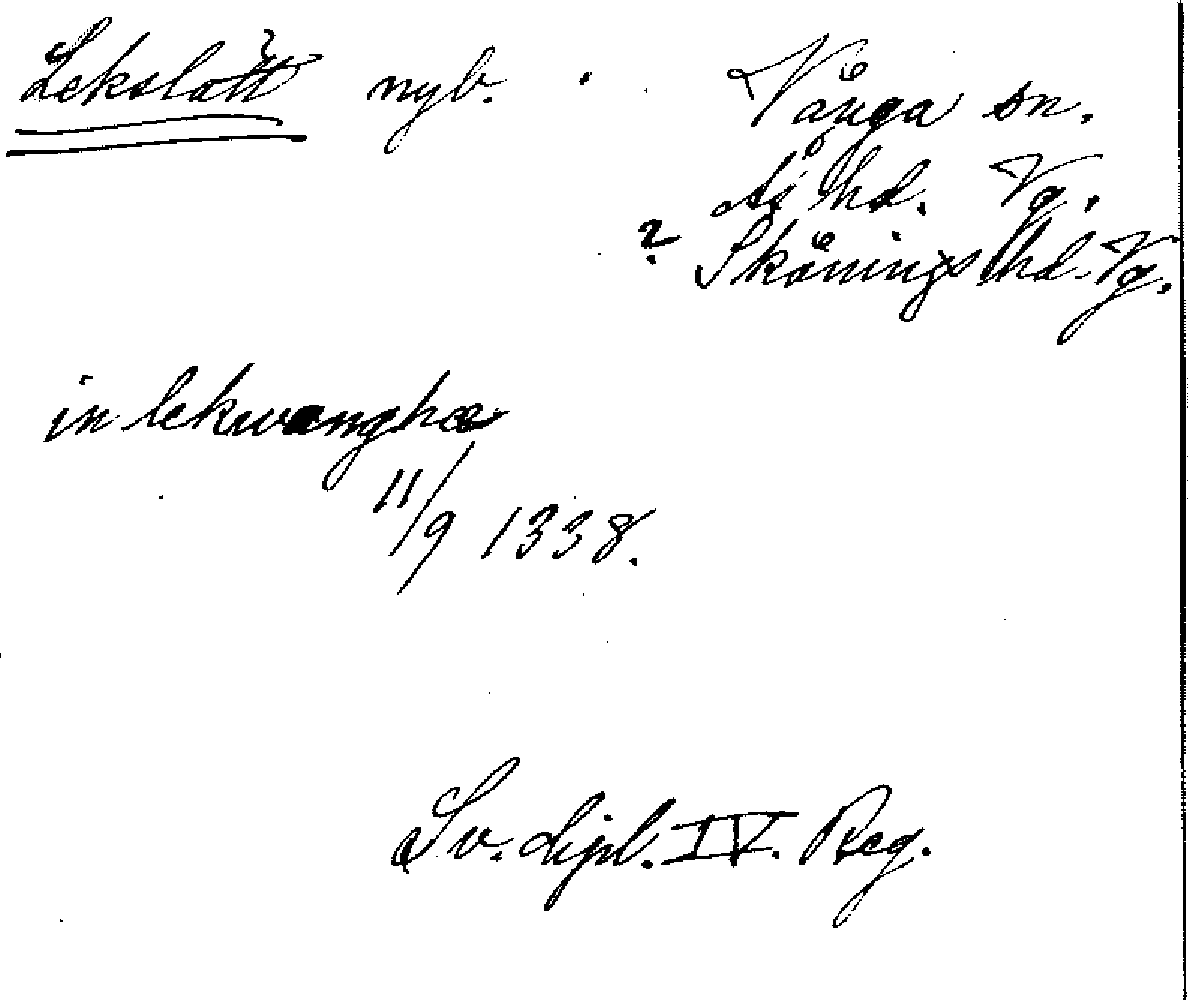 Lekslätt nyb. Vånga sn.
Ås hd. Vg.
? Skånings hd. Vg.
in lekwanghæ
11/9 1338.
Sv. dipl. IV. Reg.